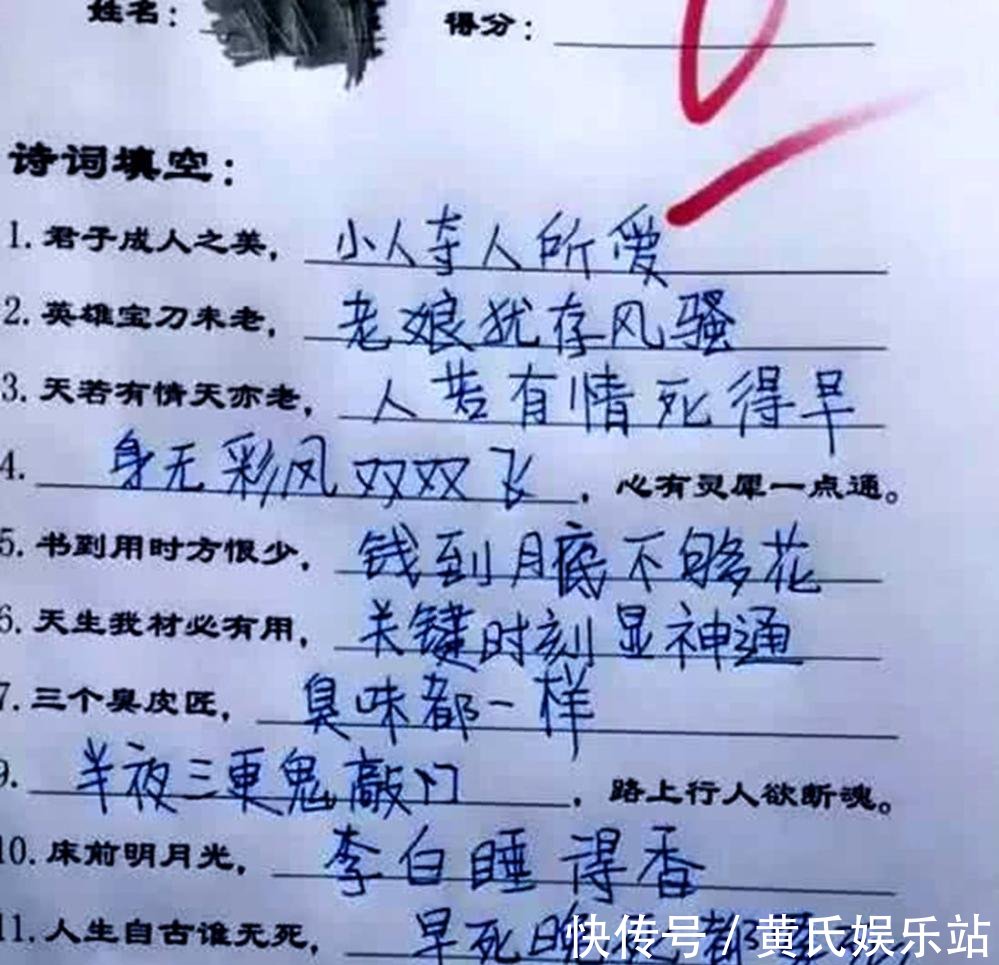 姓名：
得分：
诗词填空：
1. 君子成人之美，小人夺人所爱
2. 英雄宝刀未老，老娘犹存风骚
3. 天若有情天亦老，人若有情死得早
4. 身无彩凤双双飞，心有灵犀一点通。
5. 书到用时方恨少，钱到月底不够花
6. 天生我材必有用，关键时刻显神通
7. 三个臭皮匠，臭味都一样
9. 半夜三更鬼敲门，路上行人欲断魂。
10. 床前明月光，李白睡得香
11. 人生自古谁无死，早死晚 都
快传号／黄氏娱乐站